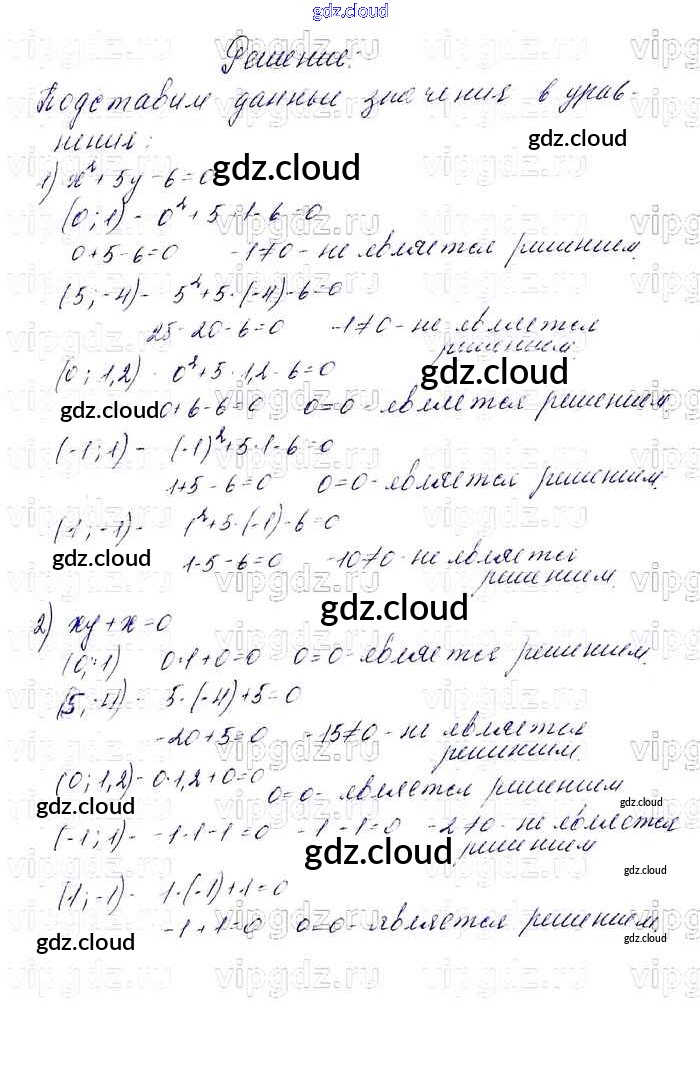 gdz.cloud
Решение:
Подставим данные значения в урав-
нения:
gdz.cloud
1) x²+5y-6=0 gdz.cloud
(0;1) - 0²+5·1-6=0
0+5-6=0 -1≠0- не является решением.
(5;-4)- 5²+5·(-4)-6=0
25-20-6=0 -1≠0- не является
решением.
(0;1,2) - 0²+5·1,2-6=0 gdz.cloud
gdz.cloud 0+6-6=0 0=0- является решением.
(-1;1)- (-1)²+5·1-6=0
1+5-6=0 0=0- является решением.
(1;-1)- 1²+5·(-1)-6=0
gdz.cloud 1-5-6=0 -10≠0- не является
решением.
gdz.cloud
2) xy+x=0
(0;1) 0·1+0=0 0=0- является решением.
(5;-4)- 5·(-4)+5=0
-20+5=0 -15≠0- не является
решением.
(0;1,2)- 0·1,2+0=0
gdz.cloud 0=0- является решением gdz.cloud
(-1;1)- -1·1-1=0 -1-1=0 -2≠0- не является
gdz.cloud решением
gdz.cloud
(1;-1)- 1·(-1)+1=0
-1+1=0 0=0- является решением.
gdz.cloud gdz.cloud
vipgdz.ru